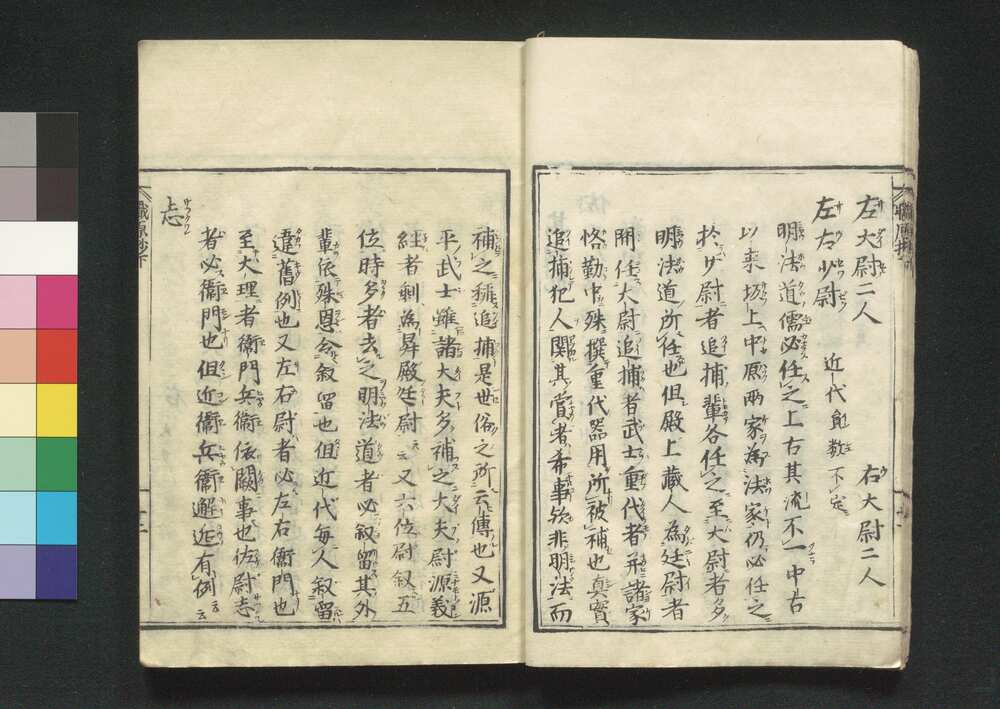 左大尉二人 右大尉二人
左右少尉 近代員数不定
明法道儒必任之上右其流不一中右
以来坂上中原両家為法家仍必任之
於少尉者追捕輩各任之至大尉者多
明法道所任也但殿上蔵人為廷尉者
開任大尉追捕者武士重代者并諸家
恪勤中殊撰重代器用所被補也真實
追捕犯人関其賞者希事欤非明法而
補之稱追捕是世俗之所云傳也又源
平武士雖諸大夫多補之大夫尉源義
経者剰為昇殿廷尉云又六位尉叙五
位時多者去之明法道者必叙留其外
輩依殊恩令叙留也但近代毎人叙留
違舊例也又左右尉者必左右衞門也
至大理者衞門兵衞依闕事也佐尉志
者必衞門也但近衞兵衞邂逅有例云云
志
職原抄下